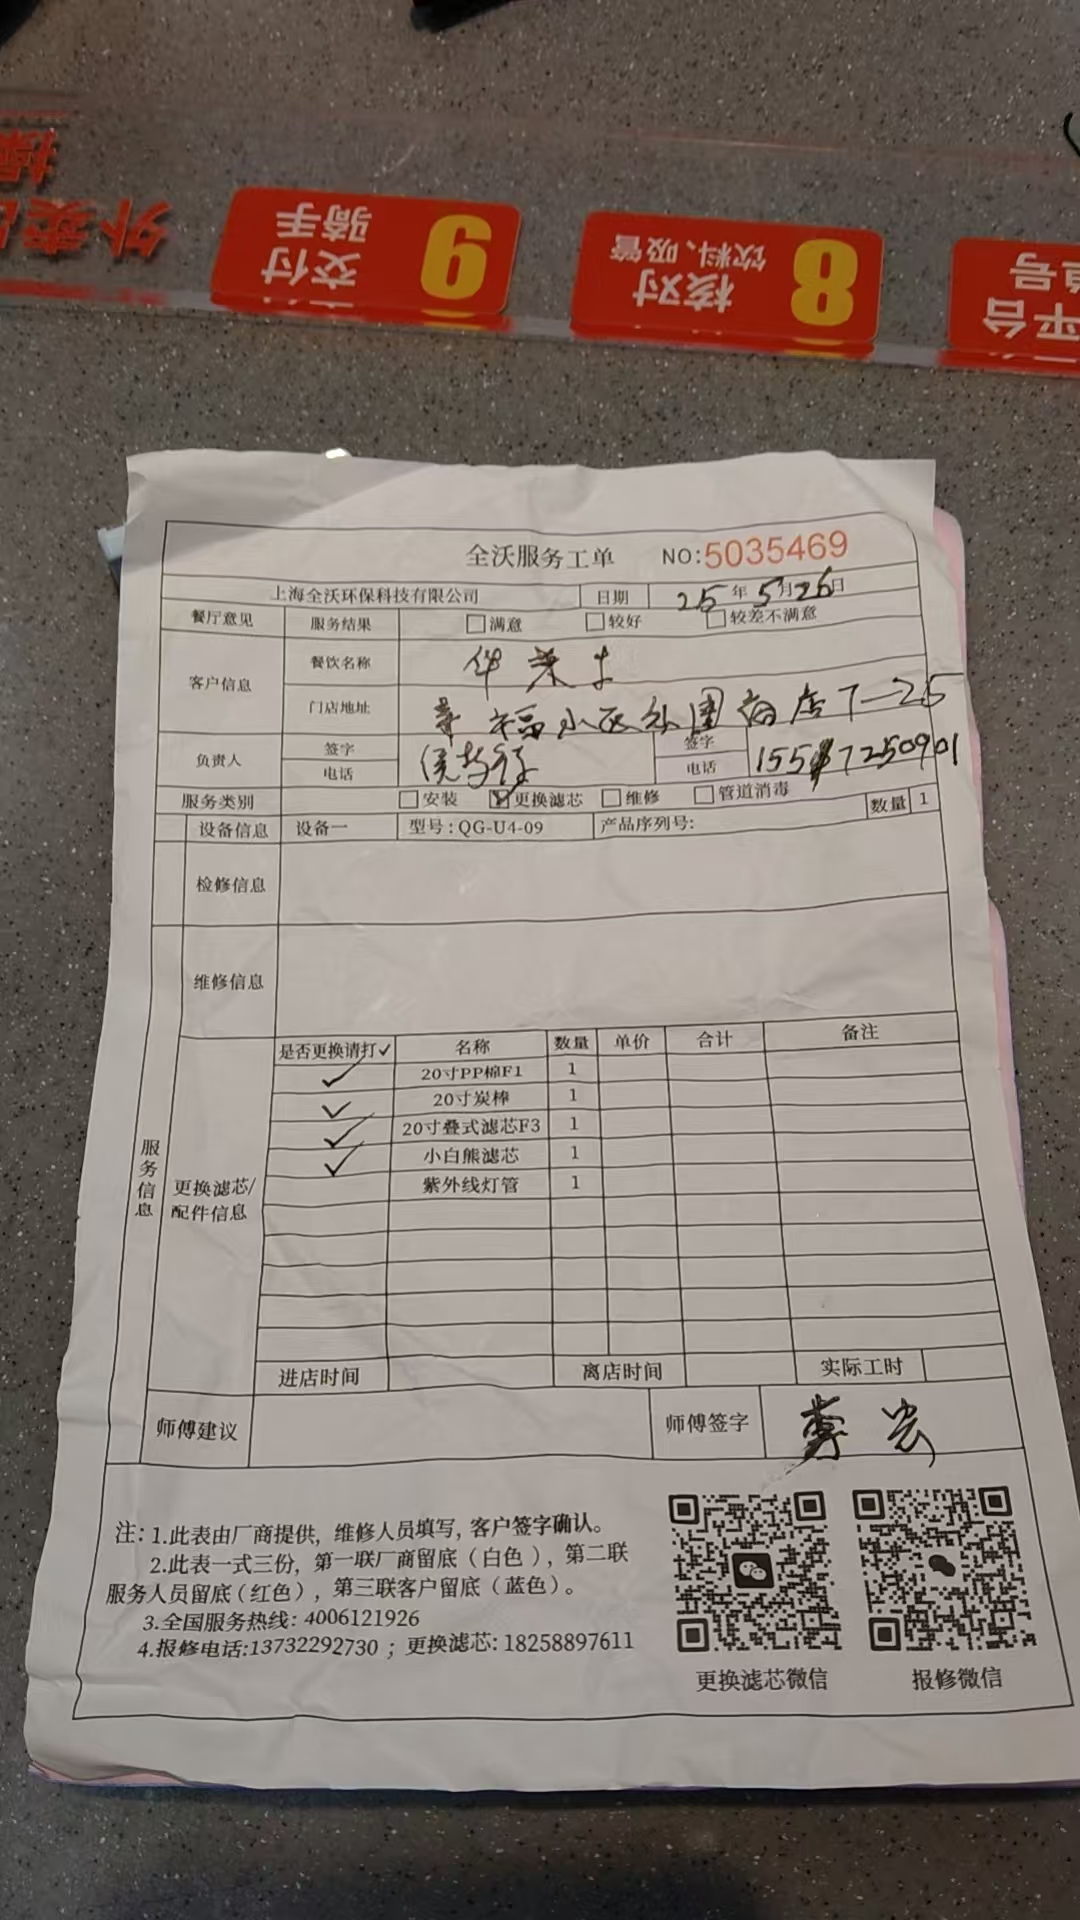 外卖
骑手
交付
9
饮料、吸管
核对
8
平台
单号
全沃服务工单 NO:5035469
上海全沃环保科技有限公司 日期 25年5月26日
餐厅意见 服务结果 满意 较好 较差不满意
客户信息 餐饮名称 华莱士
门店地址 幸福小区公园商店7-25
负责人 签字 签字
电话 电话
服务类别 安装 更换滤芯 维修 管道消毒 数量 1
设备信息 设备一 型号:QG-U4-09 产品序列号:
检修信息
维修信息
服务信息
更换滤芯/配件信息
是否更换请打✓ 名称 数量 单价 合计 备注
✓ 20寸PP棉F1 1
✓ 20寸炭棒 1
✓ 20寸叠式滤芯F3 1
✓ 小白熊滤芯 1
紫外线灯管 1
进店时间 离店时间 实际工时
师傅建议 师傅签字
注: 1.此表由厂商提供, 维修人员填写, 客户签字确认。
2.此表一式三份, 第一联厂商留底(白色), 第二联
服务人员留底(红色), 第三联客户留底(蓝色)。
3.全国服务热线: 4006121926
4.报修电话:13732292730 ; 更换滤芯: 18258897611
更换滤芯微信 报修微信